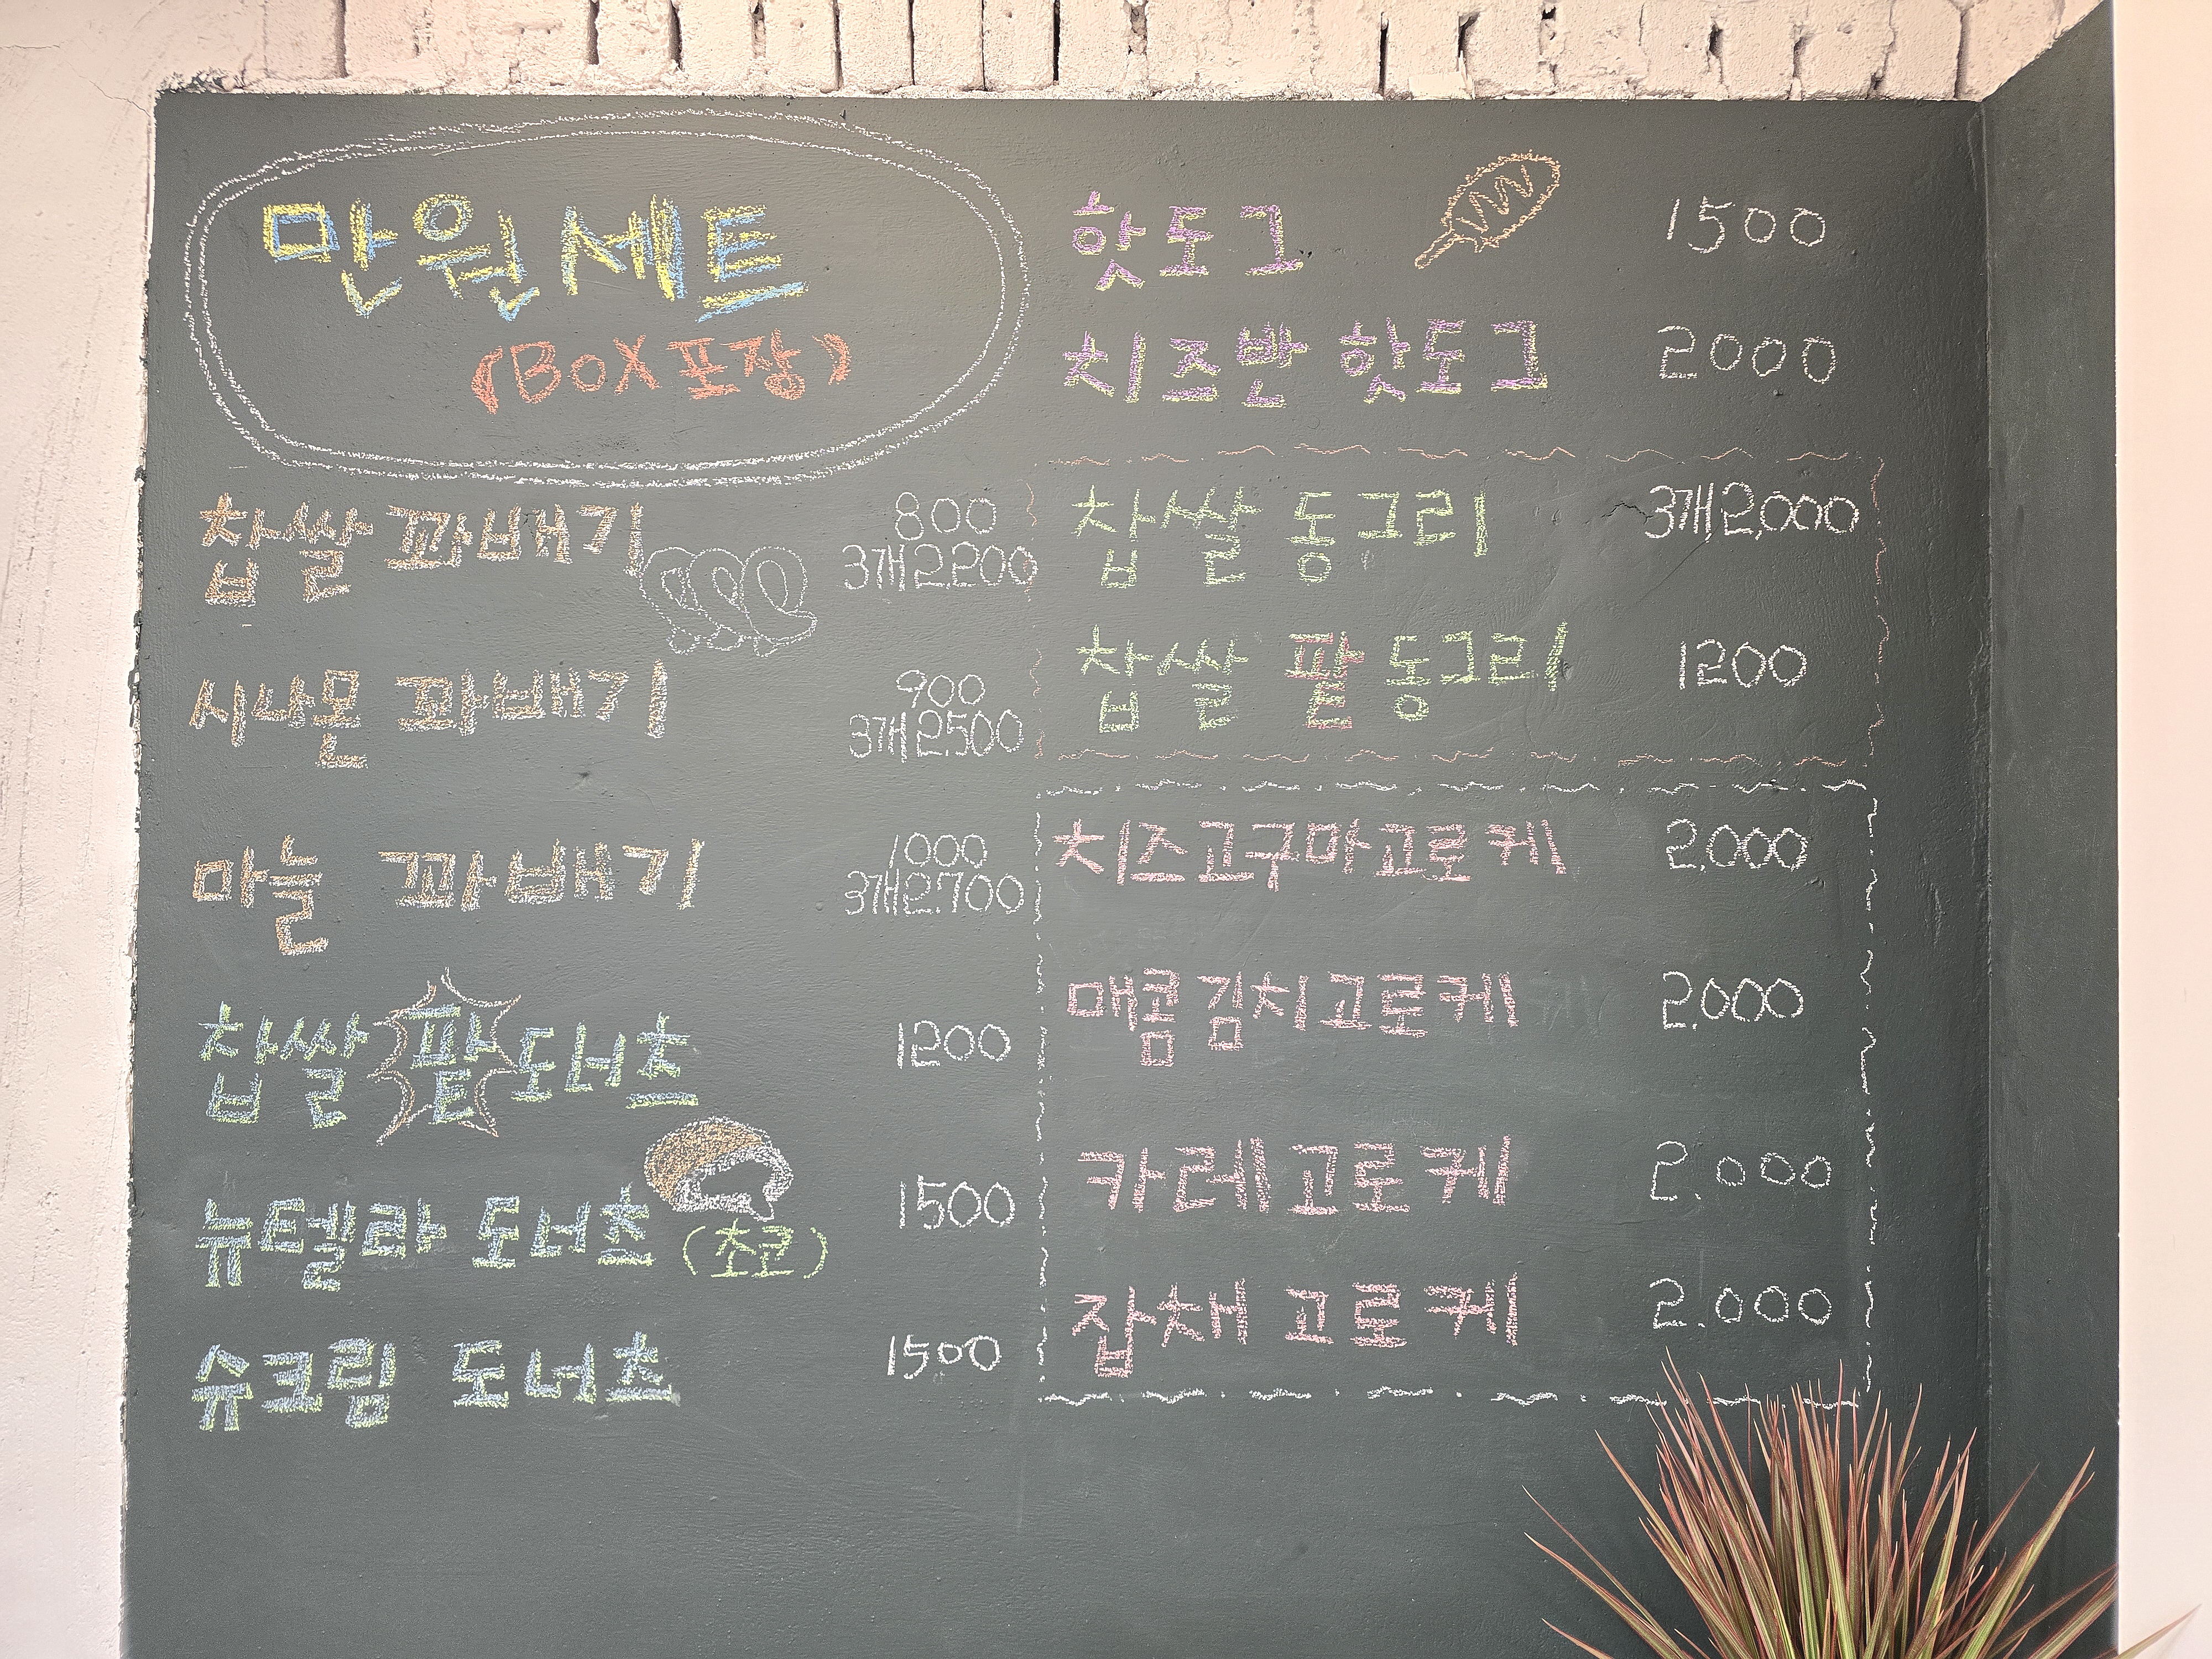 만원세트
(BOX 포장)
찹쌀 꽈배기 800
3개 2.200
시나몬 꽈배기 900
3개 2.500
마늘 꽈배기 1000
3개 2.700
찹쌀 팥 도너츠 1200
뉴텔라 도너츠 (초코) 1500
슈크림 도너츠 1500
핫도그 1500
치즈반 핫도그 2000
찹쌀 동그리 3개 2,000
찹쌀 팥 동그리 1200
치즈고구마고로케 2,000
매콤김치고로케 2.000
카레고로케 2.000
잡채 고로케 2.000